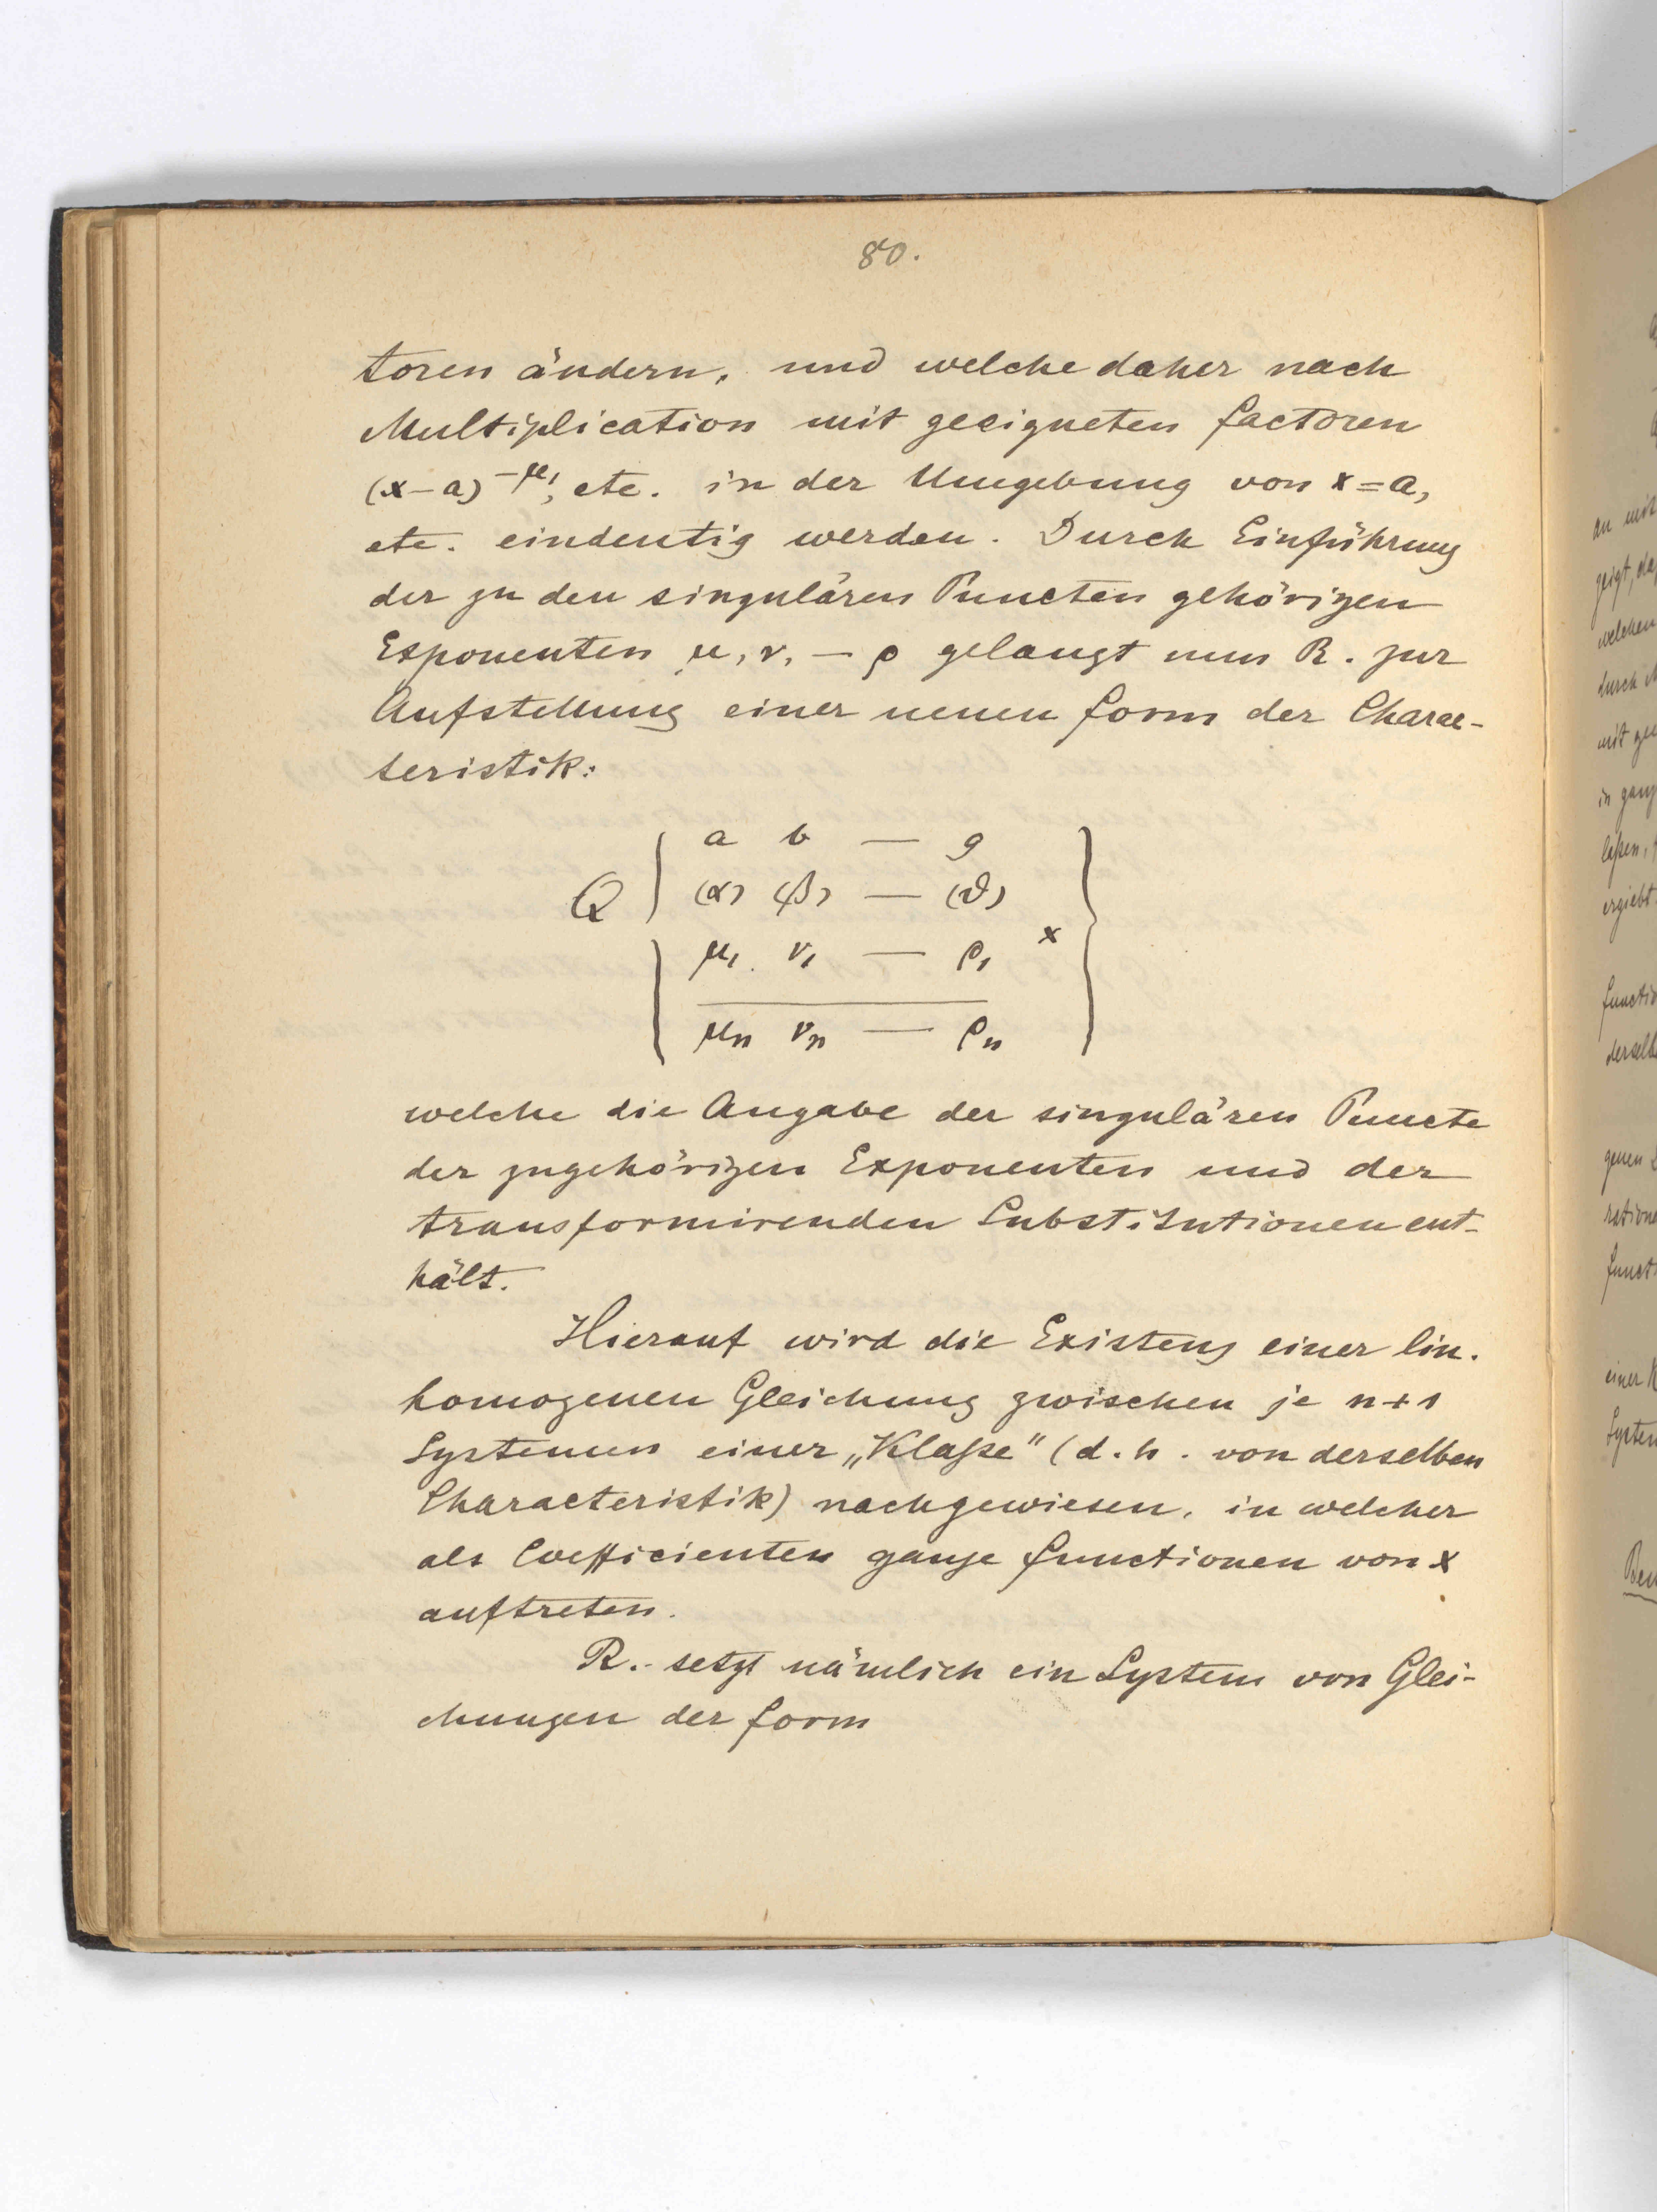 80.
toren ändern, und welche daher nach
Multiplication mit geeigneten Factoren
(x-a)^{-μ₁}, etc. in der Umgebung von x=a,
etc. eindeutig werden. Durch Einführung
der zu den singulären Puncten gehörigen
Exponenten μ, ν, — ρ gelangt nun R. zur
Aufstellung einer neuen Form der Charac-
teristik:
a b — g
Q (α) (β) — (ϑ)
μ₁ ν₁ — ρ₁ x
μₙ νₙ — ρₙ
welche die Angabe der singulären Puncte
der zugehörigen Exponenten und der
transformirenden Substitutionen ent-
hält.
Hierauf wird die Existenz einer lin.
homogenen Gleichung zwischen je n+1
Systemen einer „Klaße" (d. h. von derselben
Characteristik) nachgewiesen, in welcher
als Coefficienten ganze Functionen von x
auftreten.
R. setzt nämlich ein System von Glei-
chungen der Form
an mit
zeigt, da
welchen
durch
mit
in ganz
laßen,
ergiebt
functio
derselb
genen
ratione
funct
einer
System
Bew